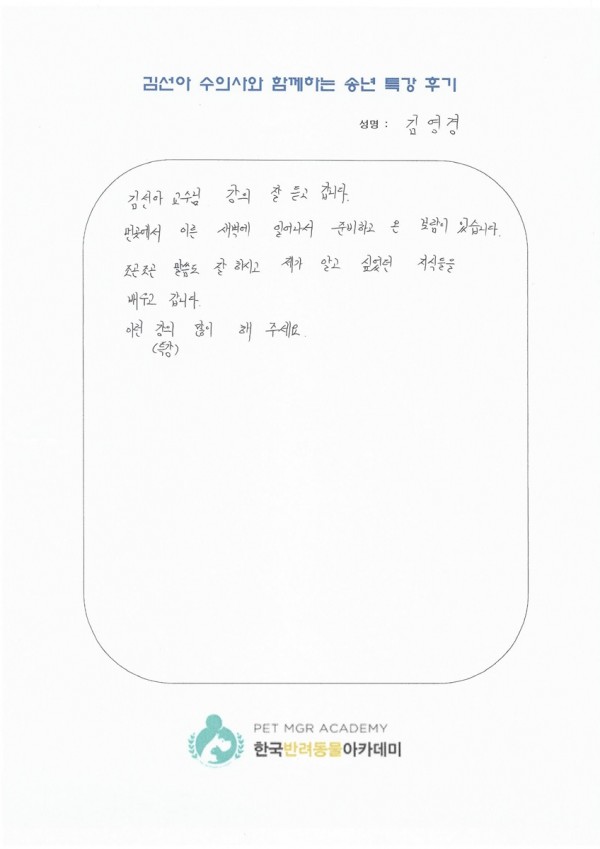 김선아 수의사와 함께하는 송년 특강 후기
성명 : 김영경
김선아 교수님 강의 잘 듣고 갑니다.
먼곳에서 이른 새벽에 일어나서 준비하고 온 보람이 있습니다.
조곤조곤 말씀도 잘 하시고 제가 알고 싶었던 지식들을
배우고 갑니다.
이런 강의 많이 해 주세요.
(특강)
PET MGR ACADEMY
한국반려동물아카데미